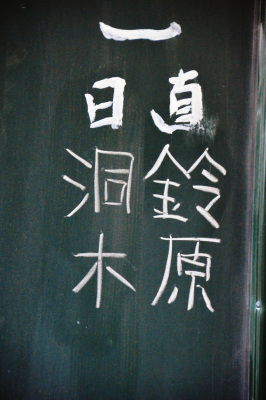 一
日直
鈴原
洞木